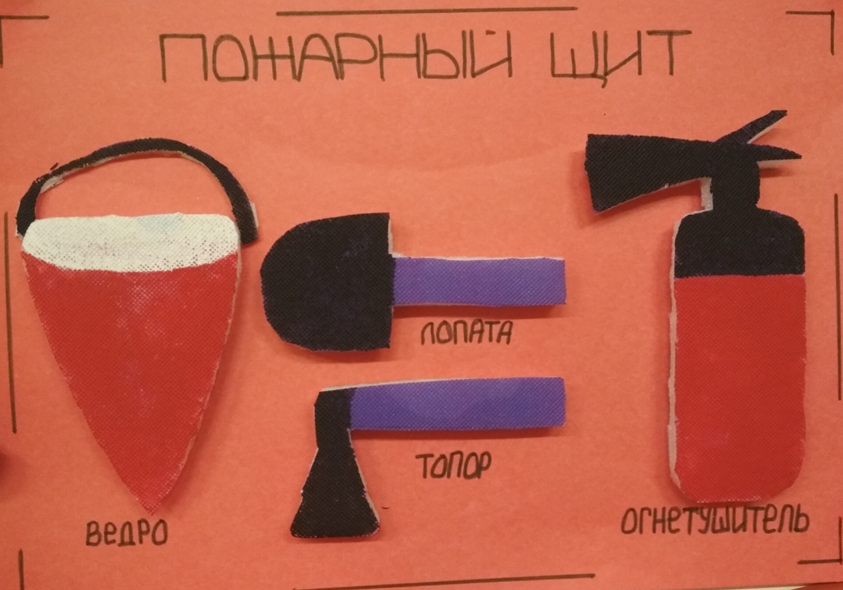 ПОЖАРНЫЙ ЩИТ
ЛОПАТА
ТОПОР
ВЕДРО
ОГНЕТУШИТЕЛЬ